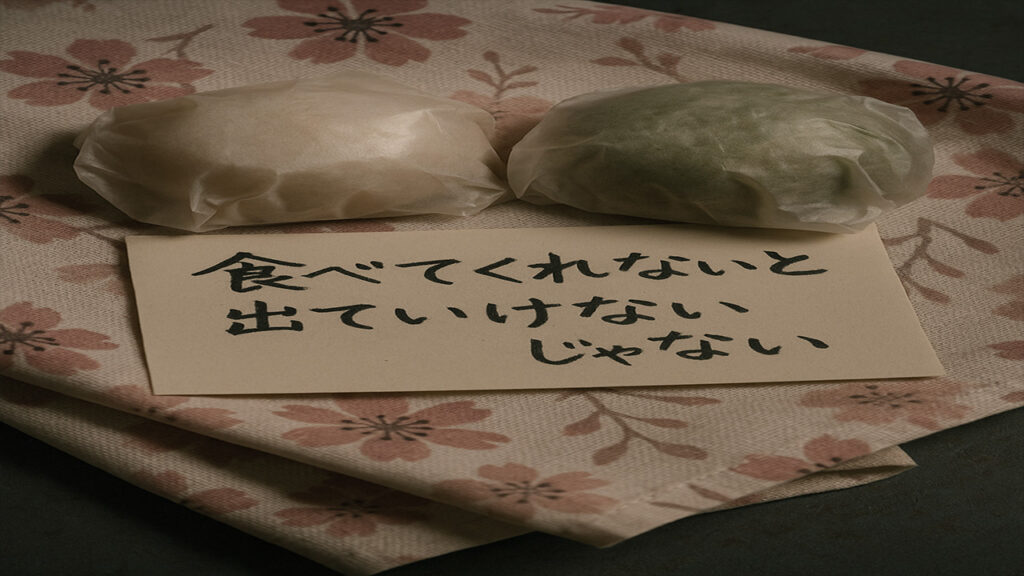 食べてくれないと
出ていけない
じゃない